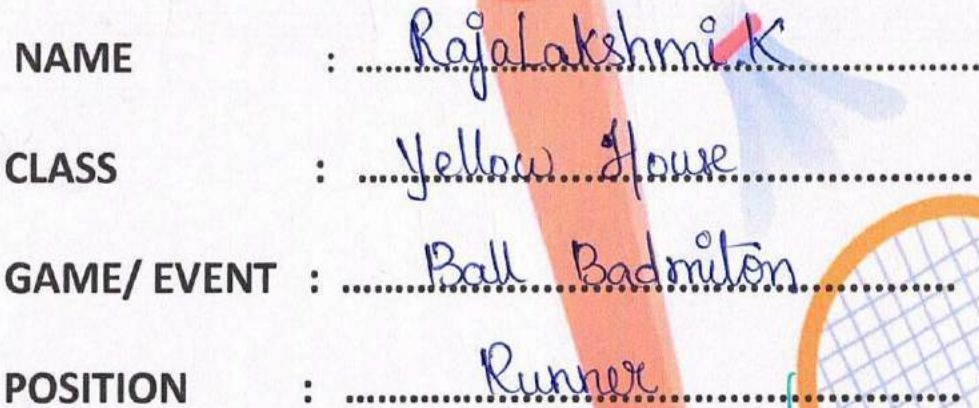 NAME : RajaLakshmi.K
CLASS : Yellow House
GAME/ EVENT : Ball Badmiton
POSITION : Runner